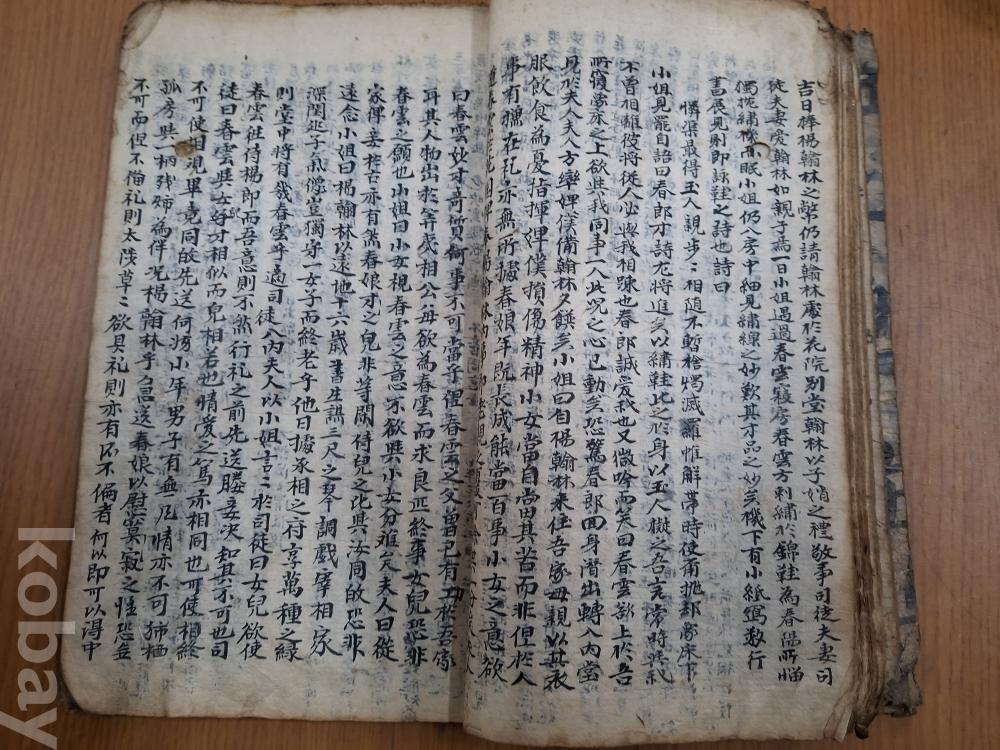 吉日捧楊翰林之幣仍請翰林處於花院別堂翰林以子婿之禮敬事司徒夫妻司
徒夫妻愛翰林如親子焉一日小姐過春雲寢房春雲方刺繡於錦鞋為春陽所惱
獨枕繡機而眠小姐仍入房中細見繡線之妙歎其才品之妙矣機下有小紙寫數行
書展見則即詠鞋之詩也詩曰
憐渠最得玉人親步步相隨不暫捨燭滅羅帷解帶時使甭抛却象床下
小姐見罷自語曰春郎才詩尤將進矣以繡鞋比之於身以玉人擬之吾言常時共我
不曾相離彼將從人必與我相踈也春郎誠愛我也又微吟而笑曰春雲欲上於吾
所寢象床之上欲與我同事一人此兒之心已動矣恐驚春郎回身潛出轉入內堂
見於夫人夫人方率婢僕備翰林夕饌矣小姐曰自楊翰林來住吾家母親以其衣
服飲食為憂指揮婢僕損傷精神小女當自當其苦而非但於人
事有嫌在礼亦無所據春娘年既長成能當百事小女之意欲
曰春雲妙才奇質何事不可當乎但春雲之父曾已有功於吾家
耳其人物出於等夷相公每欲為春雲而求良匹終事女兒恐非
春雲之願也小姐曰小女視春雲之意不欲與小女分離矣夫人曰從
家婢妾於古亦有然春娘才之兒非等閑侍兒之比與汝同歸恐非
遠念小姐曰楊翰林以遠地十六歲書生調三尺之琴調戲宰相家
深閨處子氣像豈獨守一女子而終老乎他日據丞相之府享萬種之綠
則堂中將有幾春雲乎適司徒入內夫人以小姐言言於司徒曰女兒欲使
春雲往侍楊郎而吾意則不然行礼之前先送媵妾決知其不可也司
徒曰春雲與女兒才相似而皃相若也情愛之篤亦相同也可使相終
不可使相視畢竟同歸先送何妨少年男子有無凡情亦不可獨栖
孤房與一柄殘燭為伴况楊翰林乎急送春娘以慰寞寂之懷恐無
不可而但不備礼則太淺草草欲具礼則亦有所不便者何以即可以得中